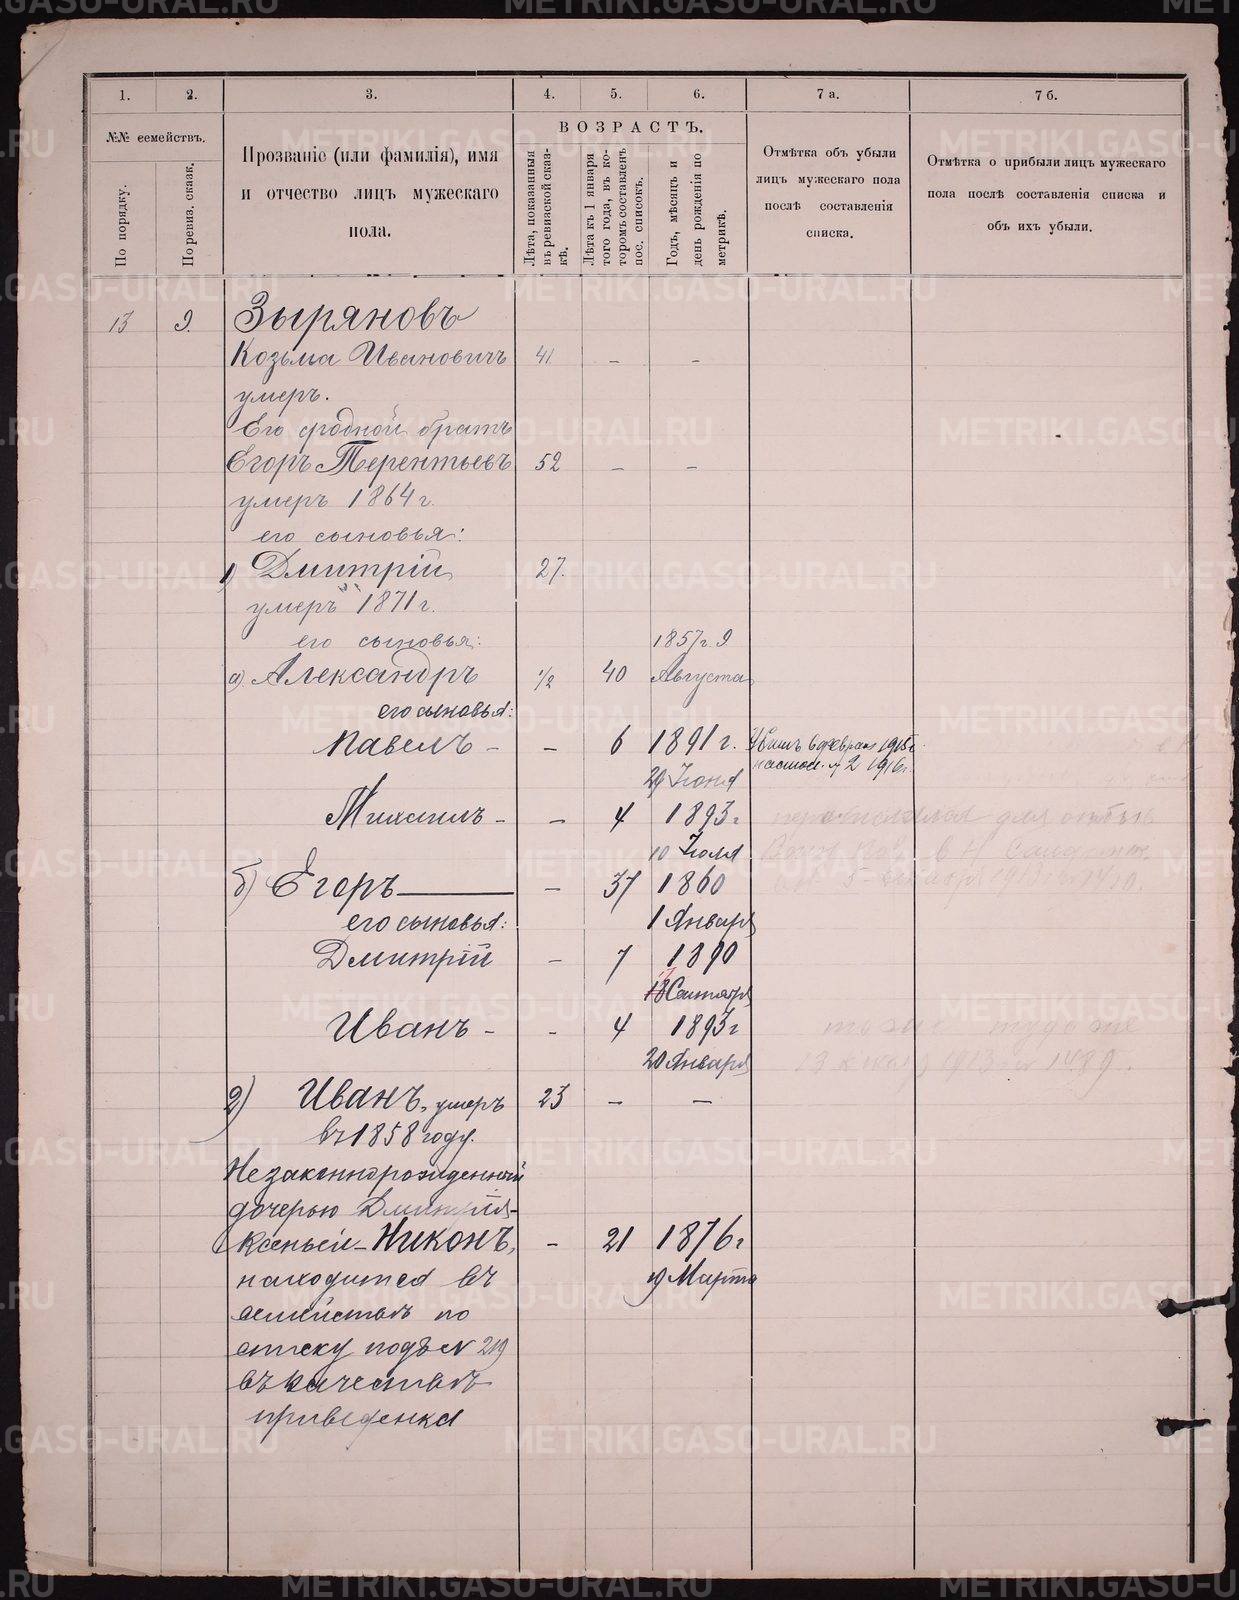 1.
2.
3.
4.
5.
6.
7 а.
7 б.
№№ семействъ.
По порядку.
По ревиз. сказк.
Прозваніе (или фамилія), имя
и отчество лицъ мужескаго
пола.
ВОЗРАСТЪ.
Лѣта, показанныя
въ ревизской сказ-
кѣ.
Лѣта къ 1 января
того года, въ ко-
торомъ составленъ
пос. списокъ.
Годъ, мѣсяцъ и
день рожденія по
метрикѣ.
Отмѣтка объ убыли
лицъ мужескаго пола
послѣ составленія
списка.
Отмѣтка о прибыли лицъ мужескаго
пола послѣ составленія списка и
объ ихъ убыли.
13 9. Зыряновъ
Козьма Ивановичъ 41 – –
умеръ.
Его сродной братъ
Егоръ Терентьевъ 52 – –
умеръ 1864 г.
его сыновья:
1) Дмитрій 27.
умеръ 1871 г.
его сыновья: 1857 г. 9
а) Александръ 1/2 40 Августа
его сыновья:
Павелъ – – 6 1891 г. Убитъ въ феврал 1915 г.
№ 2 1916 г.
29 Іюня
Михаилъ – – 4 1893 г
10 Іюля
б) Егоръ – 37 1860
его сыновья: 1 Января
Дмитрій – 7 1890
18 Сентябр
Иванъ – – 4 1893 г
20 Января
1913 1489.
2) Иванъ, умеръ 23 – –
въ 1858 году.
Незаконнорожденный
дочерью Дмитрія
Ксеньей – Никонъ, – 21 1876 г
находится въ 19 Марта
семействѣ по
списку подъ № 219
въ качествѣ
приведенка
METRIKI.GASO-URAL.RU